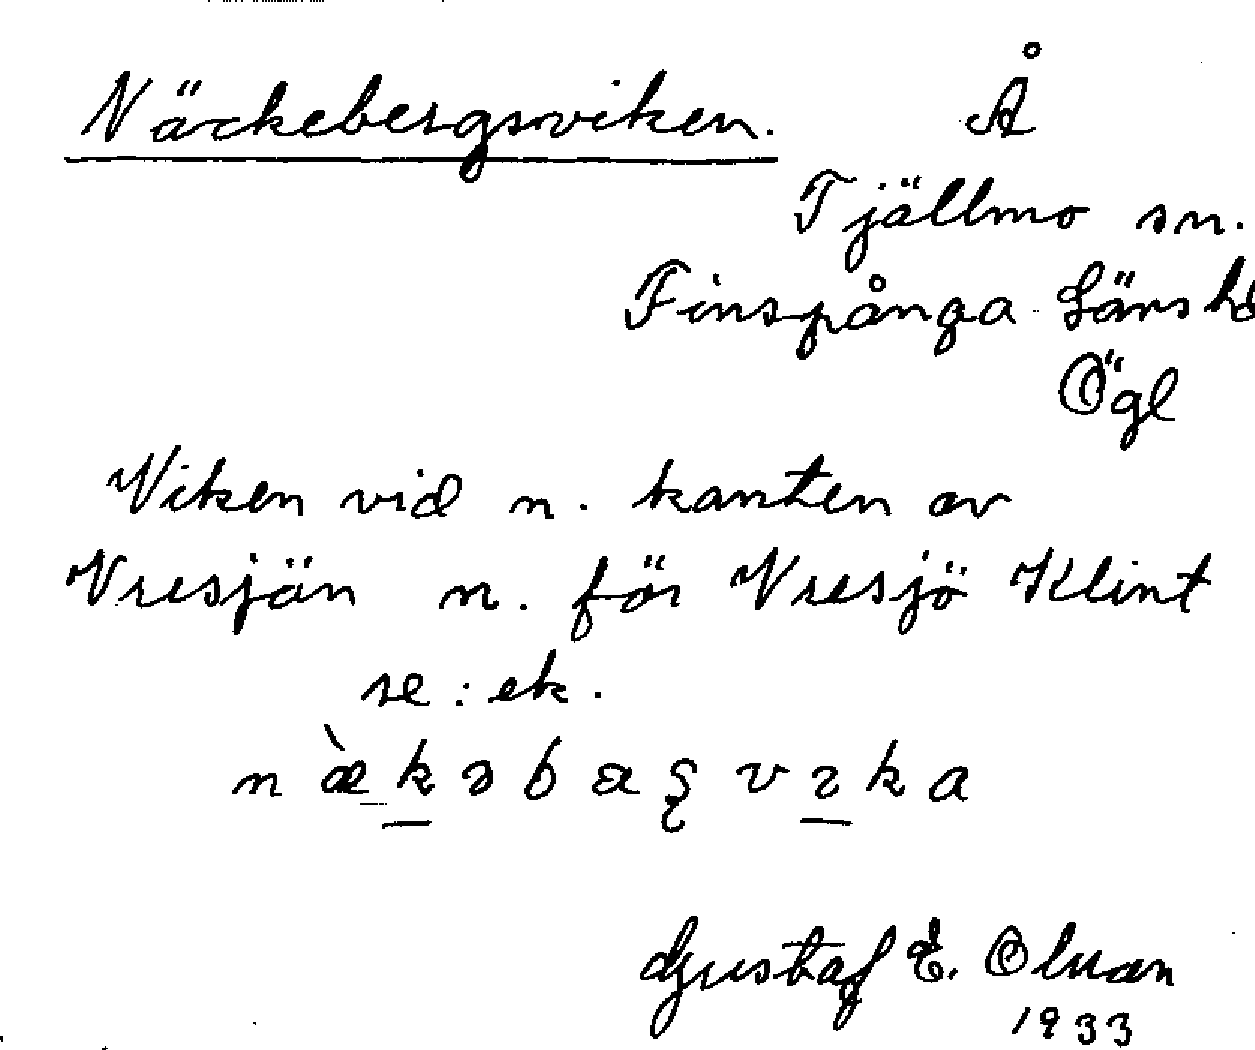 Näckebergsviken. Å
Tjällmo sn.
Finspånga Läns hd
Ögl
Viken vid n. kanten av
Vresjän n. för Vresjö Klint
se: ek.
Gustaf E.
1933